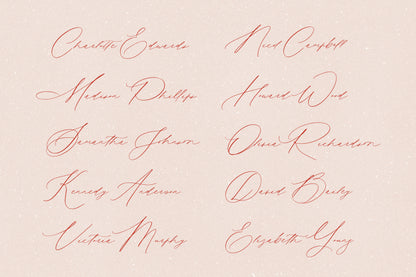 Charlotte Edwards
Neil Campbell
Madison Phillips
Howard Wood
Samantha Johnson
Olivia Richardson
Kennedy Anderson
David Bailey
Victoria Murphy
Elizabeth Young